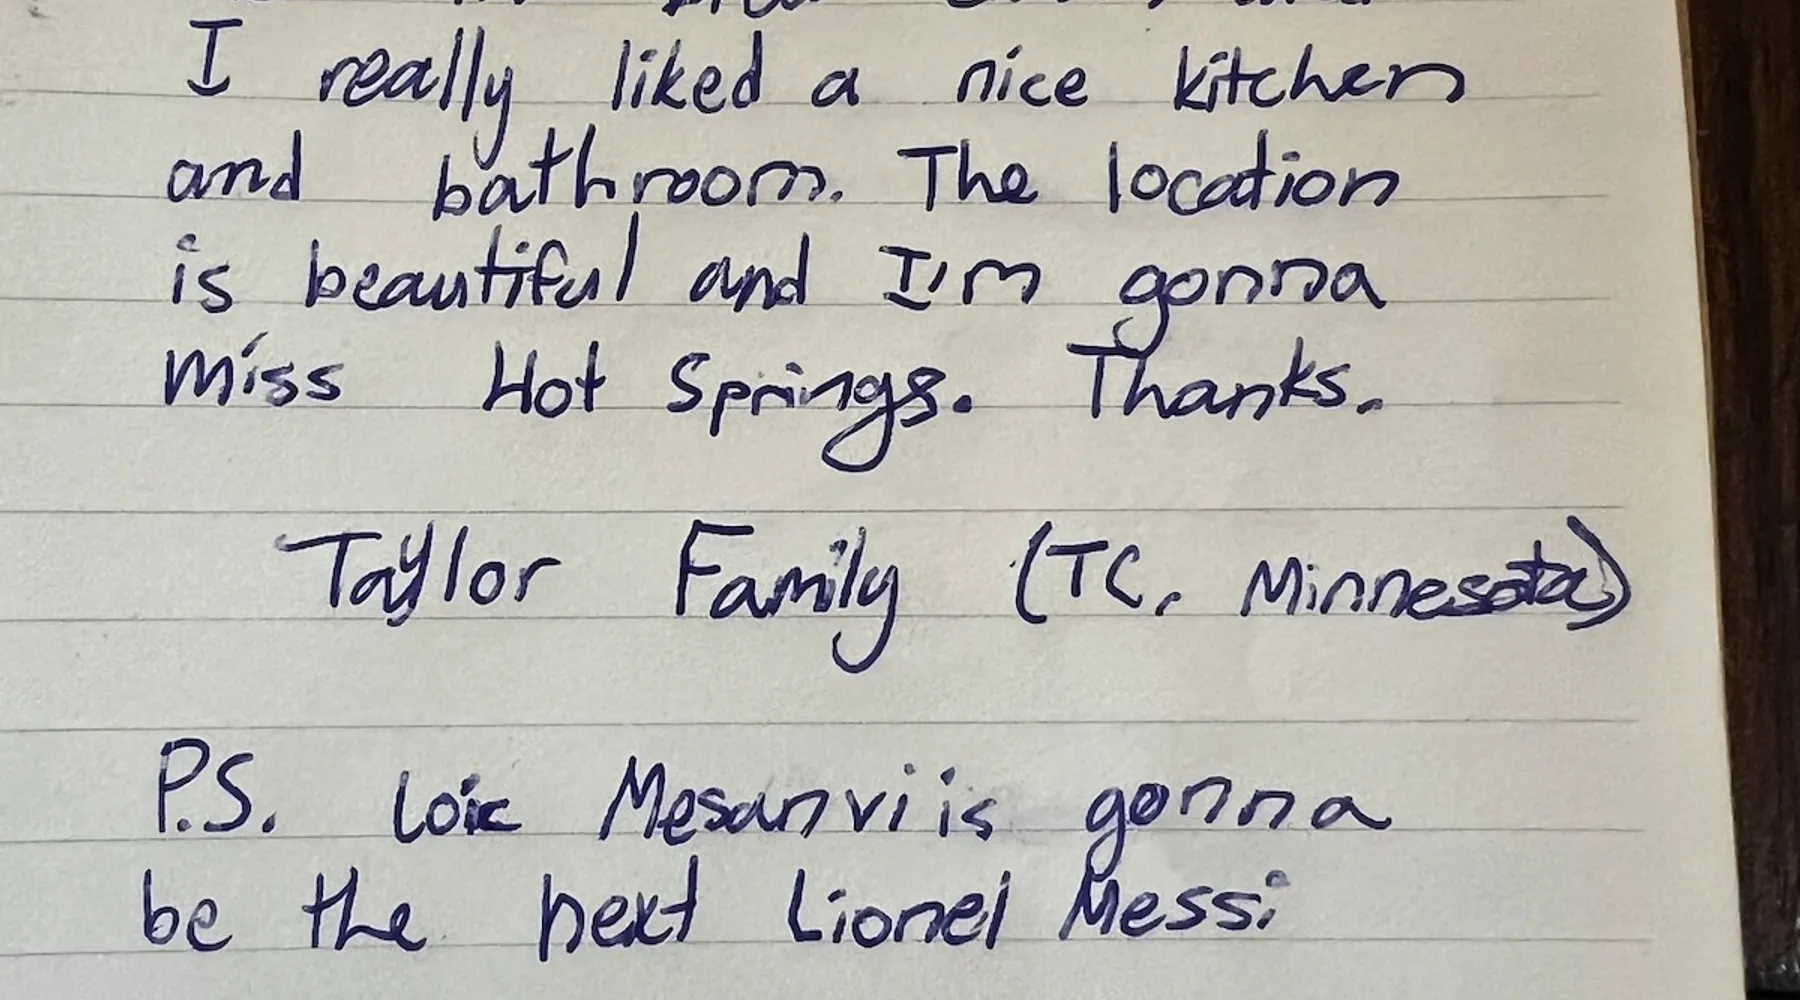 I really liked a nice kitchen
and bathroom. The location
is beautiful and I'm gonna
miss Hot Springs. Thanks.
Taylor Family (TC, Minnesota)
P.S. Loic Mesanvi is gonna
be the next Lionel Messi